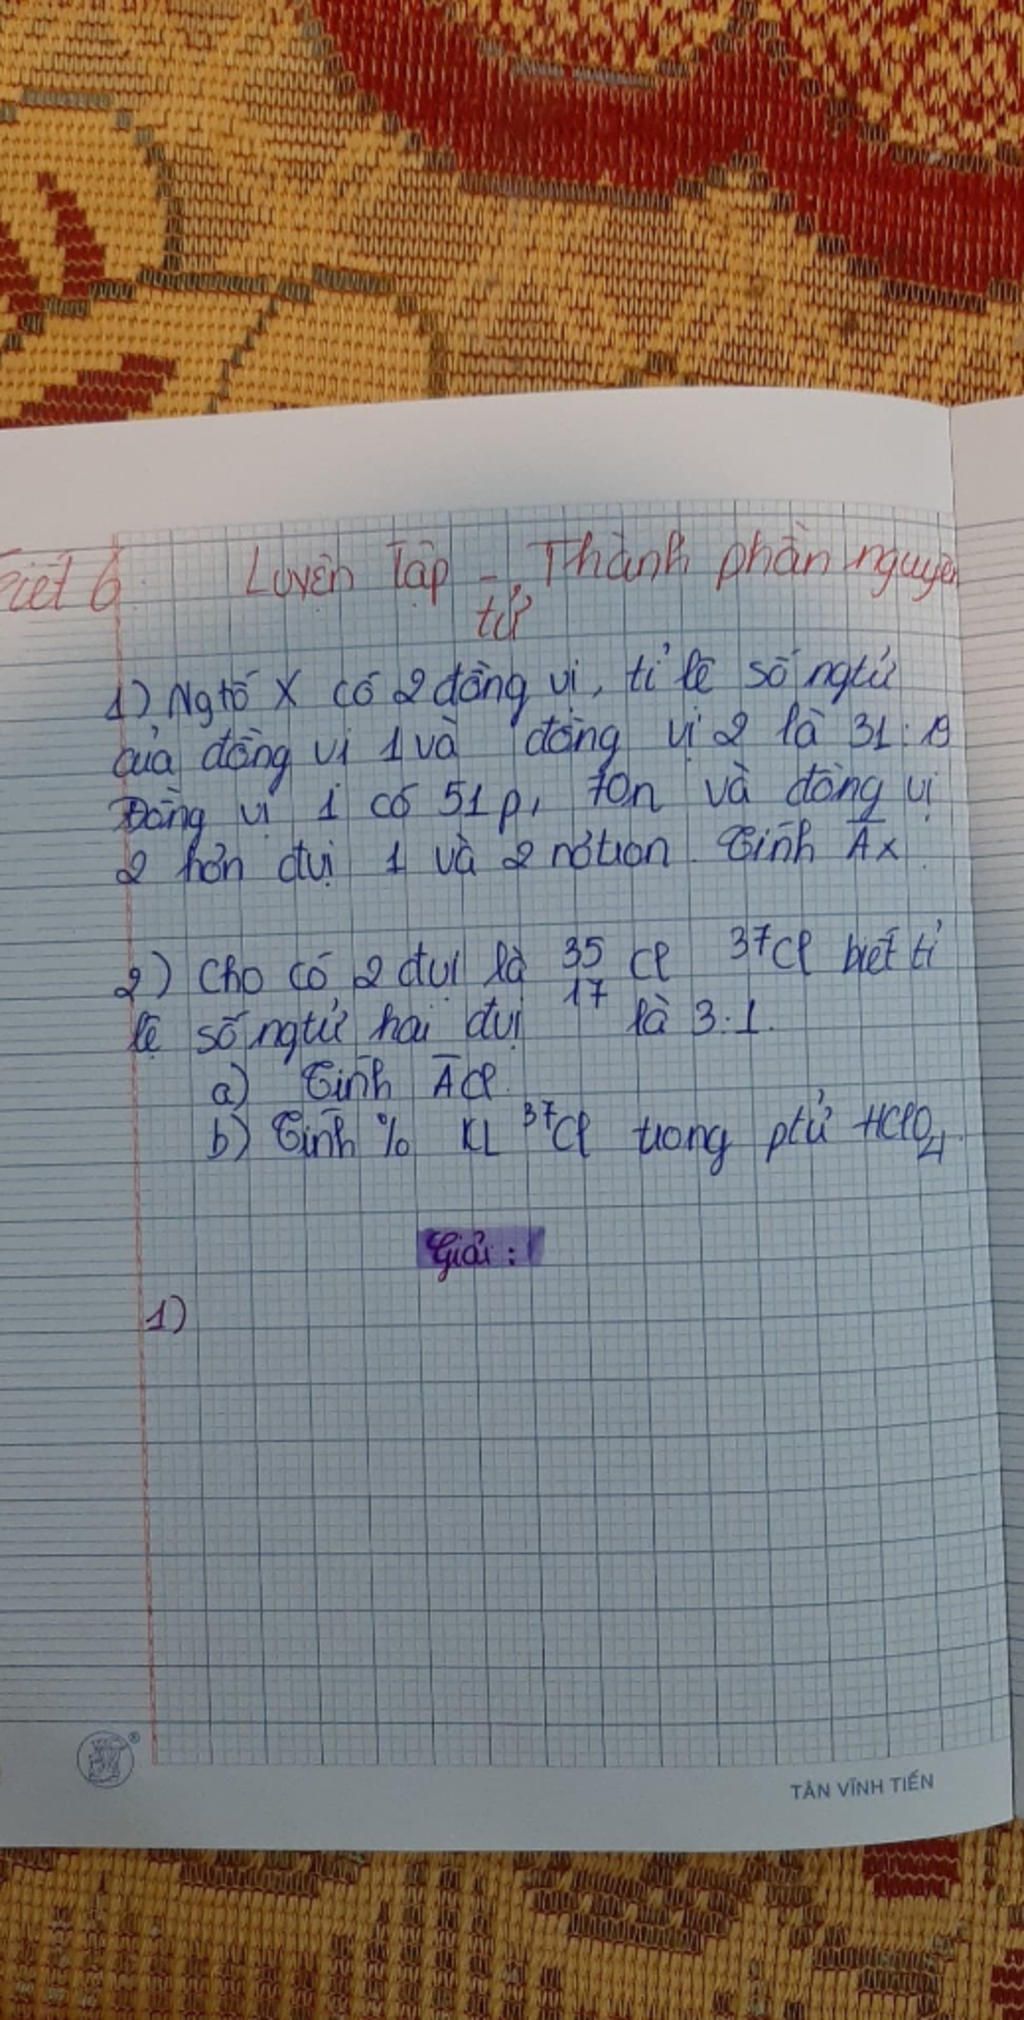 Tiết 6: Luyện Tập - Thành phần nguyên
tử
1) Ng tố X có 2 đồng vị, tỉ lệ số ngtử
của đồng vị 1 và đồng vị 2 là 31:19
Đồng vị 1 có 51p, 70n và đồng vị
2 hơn đvị 1 và 2 nơtron. Tính Ā x.
2) Cho có 2 đvị là ³⁵₁₇Cl ³⁷Cl biết tỉ
lệ số ngtử hai đvị là 3:1.
a) Tính ĀCl.
b) Tính % KL ³⁷Cl trong ptử HClO₄.
Giải:
1)
®
TÂN VĨNH TIẾN